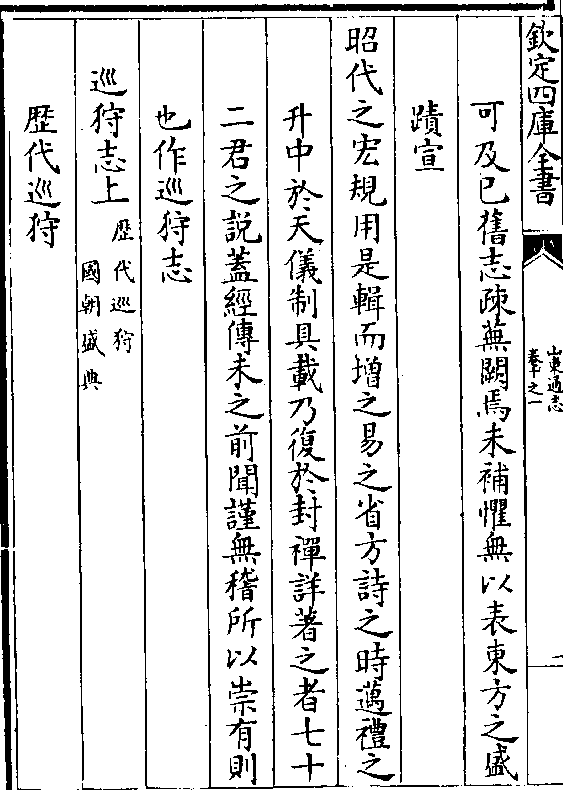 欽定四庫全書
山東通志
卷十之一
二
可及已舊志疎蕪闕焉未補懼無以表東方之盛
蹟宣
昭代之宏規用是輯而增之易之省方詩之時邁禮之
升中於天儀制具載乃復於封禪詳著之者七十
二君之説蓋經傳未之前聞謹無稽所以崇有則
也作巡狩志
巡狩志上
歴代巡狩
國朝盛典
歴代巡狩